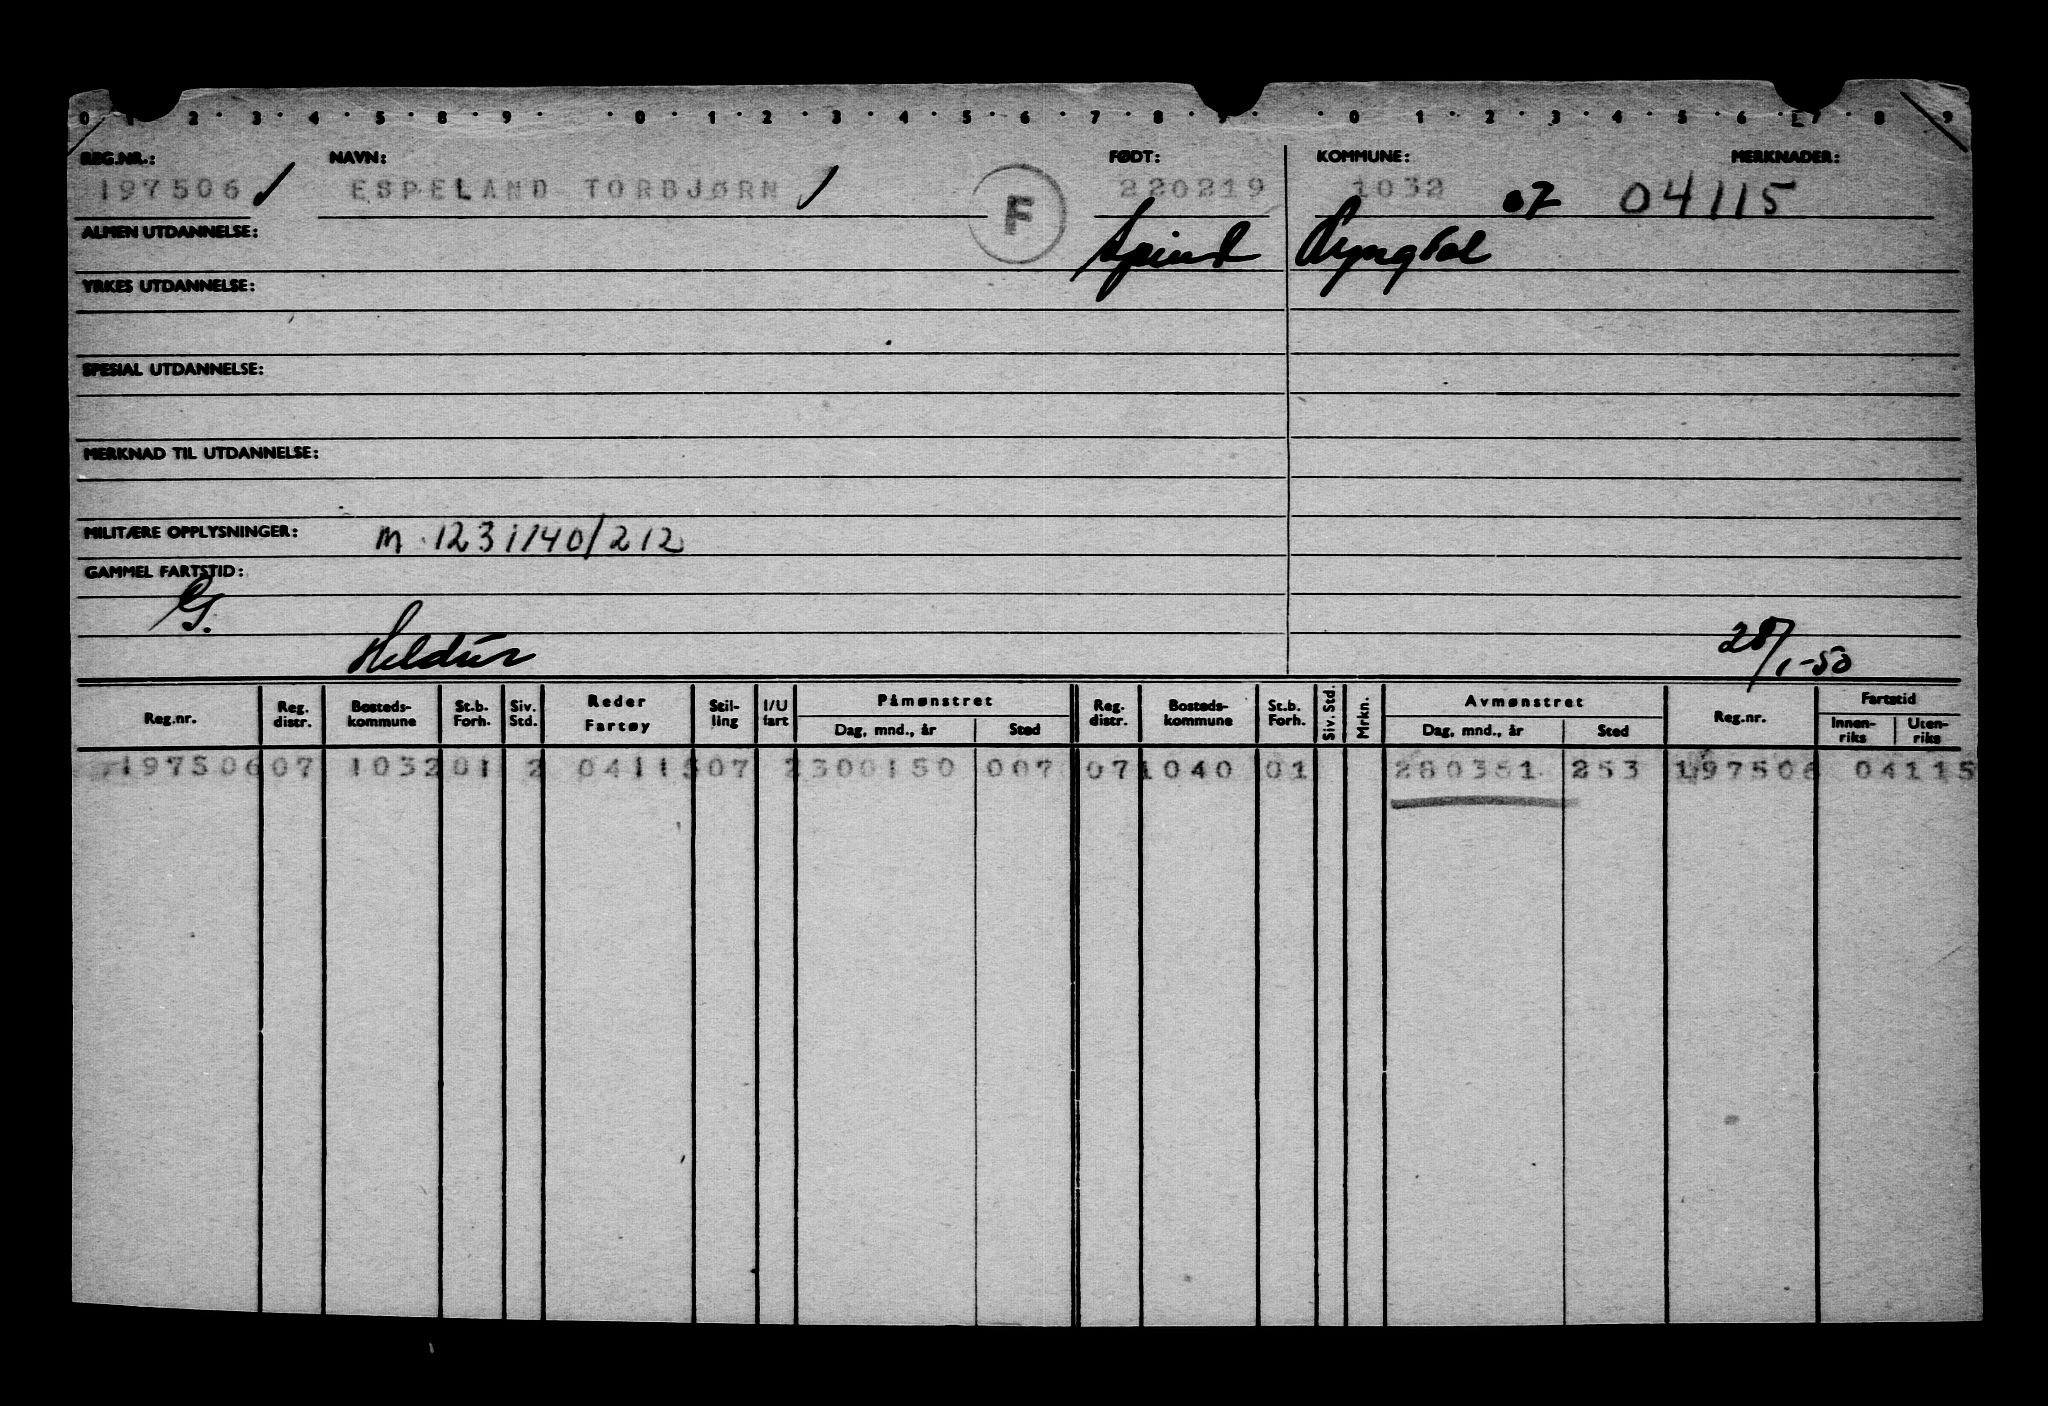 0 1 2 · 3 · 4 · 5 · 8 · 9 · · 0 · 1 · 2 · 3 · 4 · 5 · 6 · 7 · 8 · 9 · · 0 · 1 · 2 · 3 · 4 · 5 · 6 · 7 · 8 · 9
REG.NR.: NAVN: FØDT: KOMMUNE: MERKNADER:
197506 ESPELAND TORBJØRN F 220219 1032 07 04115
ALMEN UTDANNELSE: Spind Lyngdal
YRKES UTDANNELSE:
SPESIAL UTDANNELSE:
MERKNAD TIL UTDANNELSE:
MILITÆRE OPPLYSNINGER: m 1231140/212
GAMMEL FARTSTID:
G.
Heldur 28/1-50
Reg.nr. Reg. distr. Bosteds- kommune St.b. Forh. Siv. Std. Reder Fartøy Stil- ling I/U fart Påmønstret Dag, mnd., år Sted Reg. distr. Bosteds- kommune St.b. Forh. Siv. Std. Mrkn. Avmønstret Dag, mnd., år Sted Reg.nr. Fartstid Innen- riks Uten- riks
197506 07 1032 01 2 04115 07 2 300150 007 07 1040 01 280351 253 197506 04115